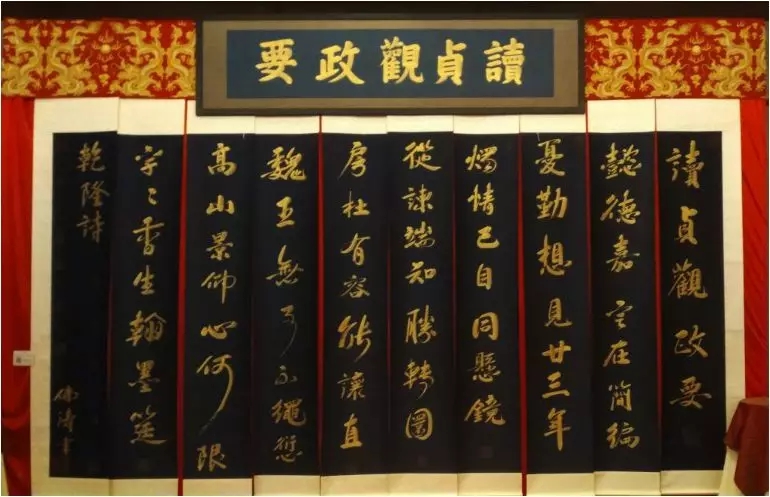 讀貞觀政要
讀貞觀政要
懿德嘉言在簡編
憂勤想見廿三年
燭情已自同懸鏡
從諫端知勝轉圜
房杜有容能讓直
魏王無事不繩愆
高山景仰心何限
字〻香生翰墨筵
乾隆詩